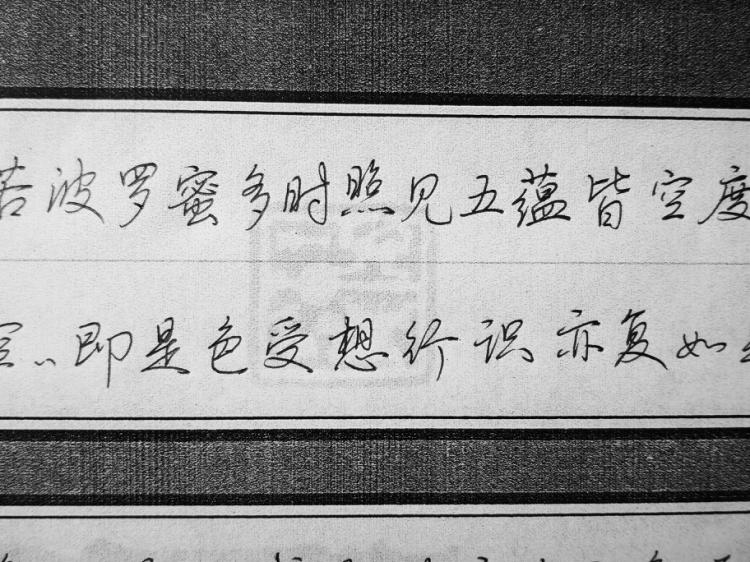 若波罗蜜多时照见五蕴皆空度
空⺀即是色受想行识亦复如